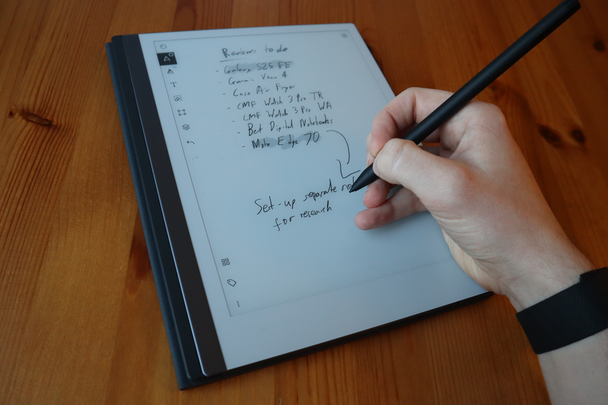 Reviews to do
- Galaxy S25 FE
- Garmin Venu 4
- Coso Air Fryer
- CMF Watch 3 Pro TR
- CMF Watch 3 Pro WA
- Best Digital Notebooks
- Moto Edge 70
Set-up separate
for research